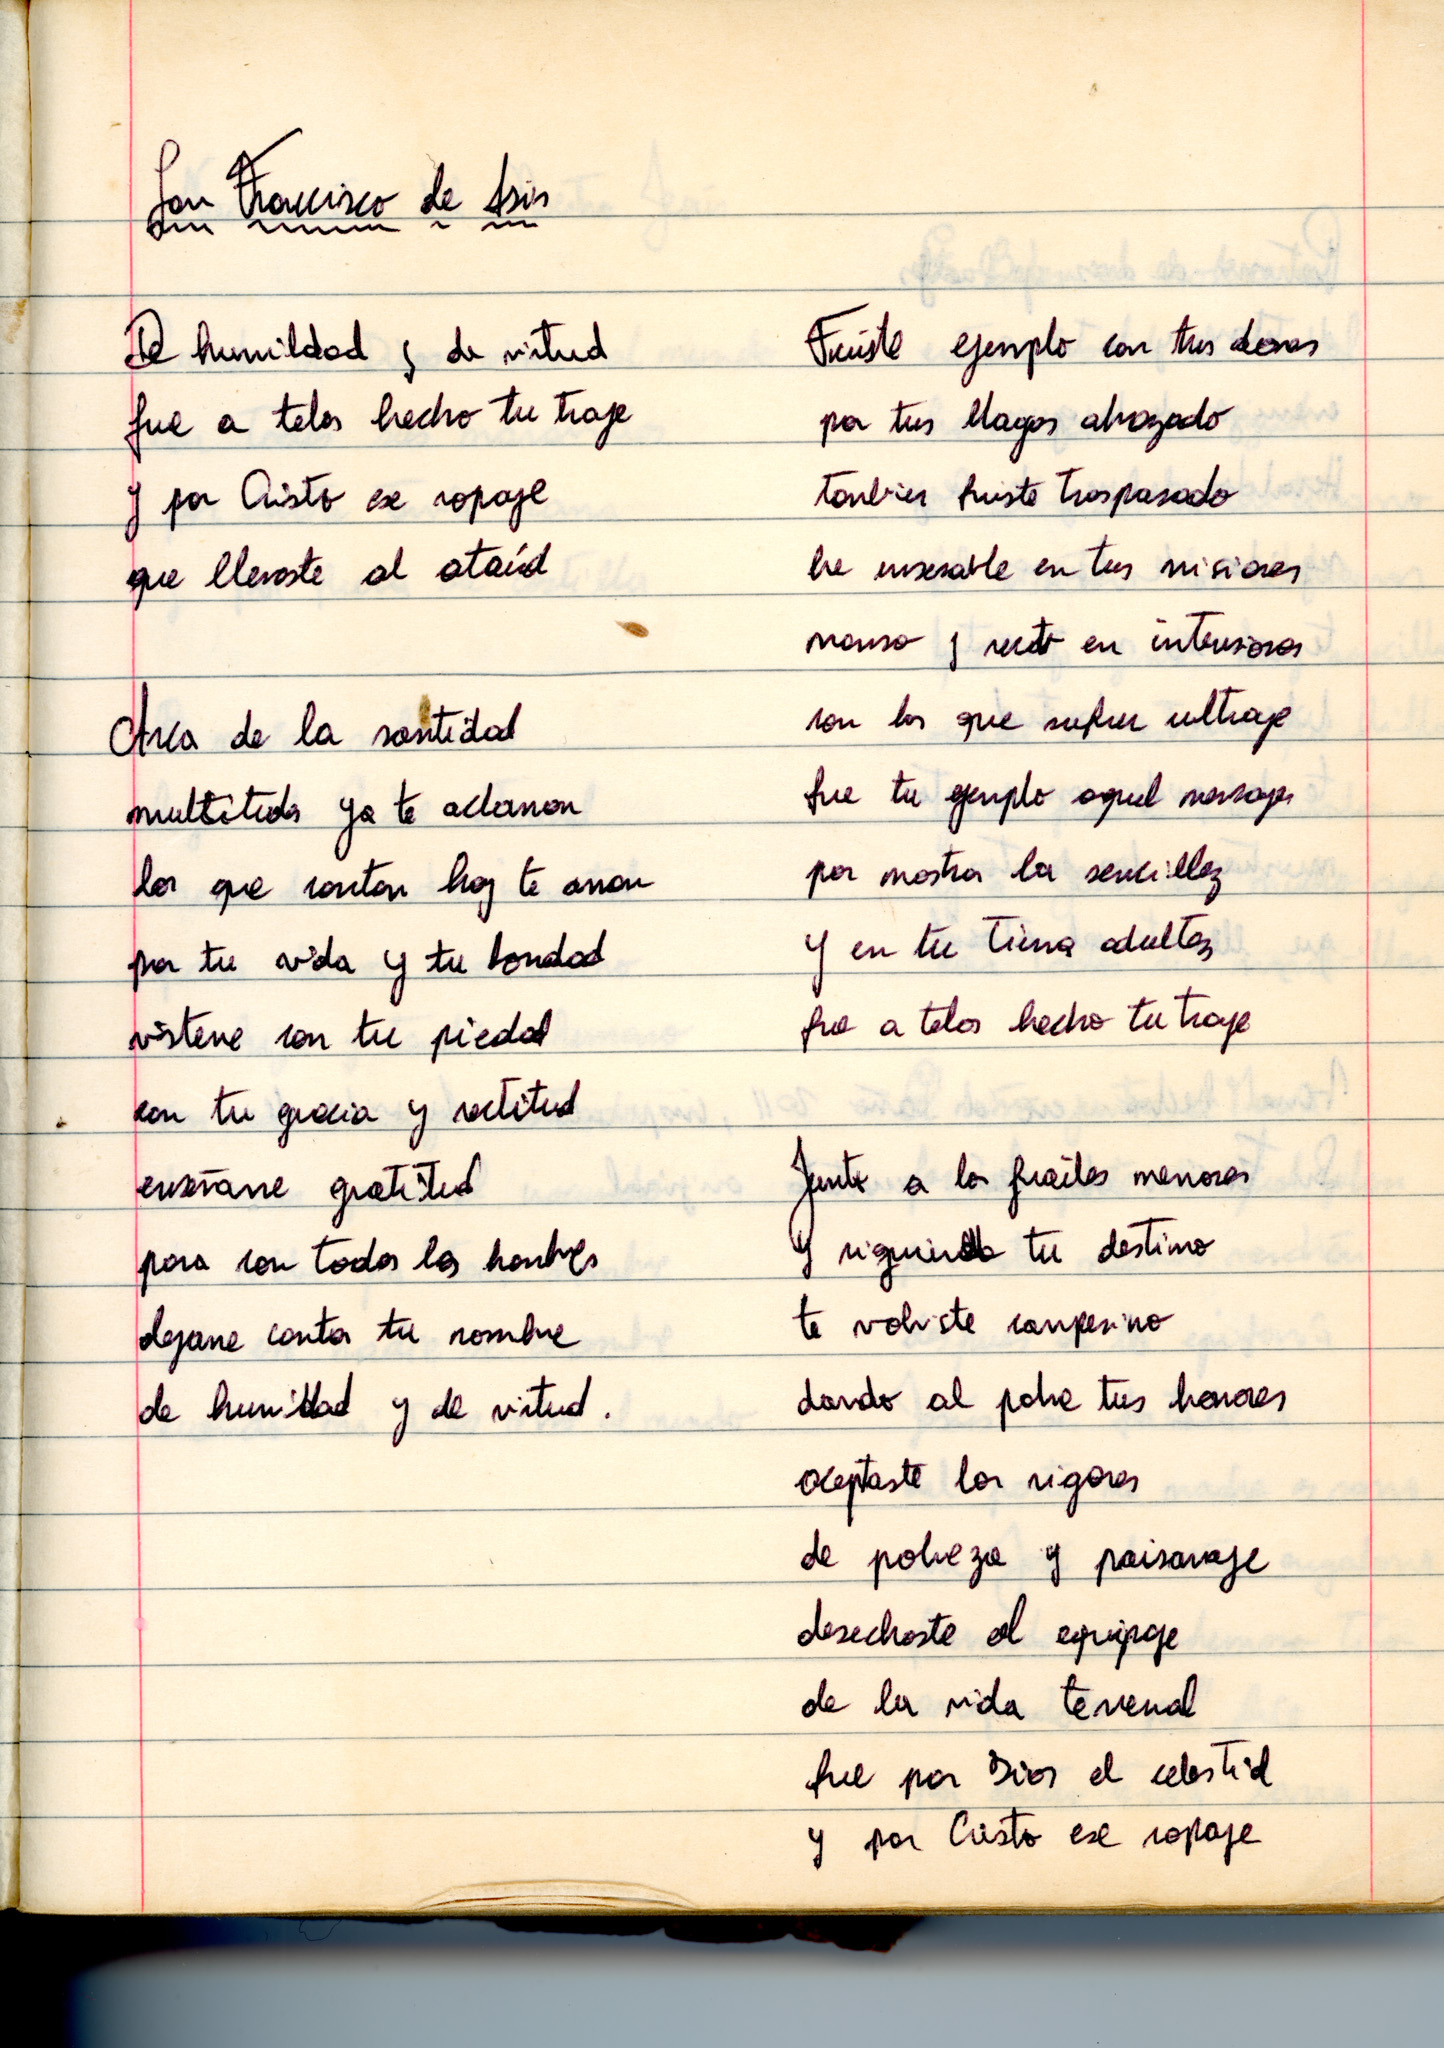 San Francisco de Asis
De humildad y de virtud
fue a telas hecho tu traje
y por Cristo ese ropaje
que llevaste al ataúd
Arca de la santidad
multitudes ya te aclaman
los que cantan hoy te aman
por tu vida y tu bondad
visteme con tu piedad
con tu gracia y rectitud
enseñame gratitud
para con todos los hombres
dejame cantar tu nombre
de humildad y de virtud.
Fuiste ejemplo con tus dones
por tus llagas abrazado
tambien fuiste traspasado
he en tus misiones
manso y recto en
con los que sufren ultraje
fue tu ejemplo aquel mensaje
por mostrar la sencillez
y en tu tierna adultez
fue a telas hecho tu traje
Junto a los frailes menores
y siguiendo tu destino
te volviste campesino
dando al pobre tus honores
aceptaste los rigores
de pobreza y paisanaje
desechaste el equipaje
de la vida terrenal
fue por Dios el celestial
y por Cristo ese ropaje